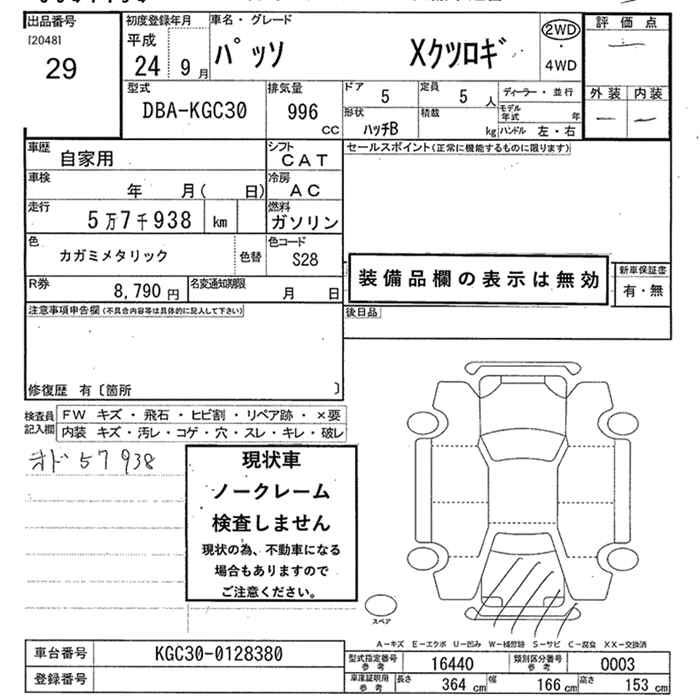 出品番号
[2048]
29
初度登録年月
平成
24 9月
車名・グレード
パッソ Xクツロギ
2WD
・
4WD
評価点
—
外装 内装
— —
型式
DBA-KGC30
排気量
996
CC
ドア
5
定員
5 人
ディーラー・並行
形状
ハッチB
積載
kg
モデル年式 年
ハンドル 左・右
車歴
自家用
シフト
CAT
セールスポイント(正常に機能するものに限ります)
車検
年 月( 日)
冷房
AC
走行
5万7千938 km
燃料
ガソリン
色
カガミメタリック
色替
色コード
S28
装備品欄の表示は無効
新車保証書
有・無
R券
8,790 円
名変通知期限
月 日
注意事項申告欄(不具合内容等は具体的に記入して下さい)
後日品
修復歴 有〔箇所 〕
検査員記入欄
FW キズ・飛石・ヒビ割・リペア跡・×要
内装 キズ・汚レ・コゲ・穴・スレ・キレ・破レ
オド 57938
現状車
ノークレーム
検査しません
現状の為、不動車になる
場合もありますので
ご注意ください。
スペア
A-キズ E-エクボ U-凹み W-補修跡 S-サビ C-腐食 XX-交換済
車台番号
KGC30-0128380
型式指定番号
参考
16440
類別区分番号
参考
0003
登録番号
車庫証明用
参考
長さ
364 cm
幅
166 cm
高さ
153 cm